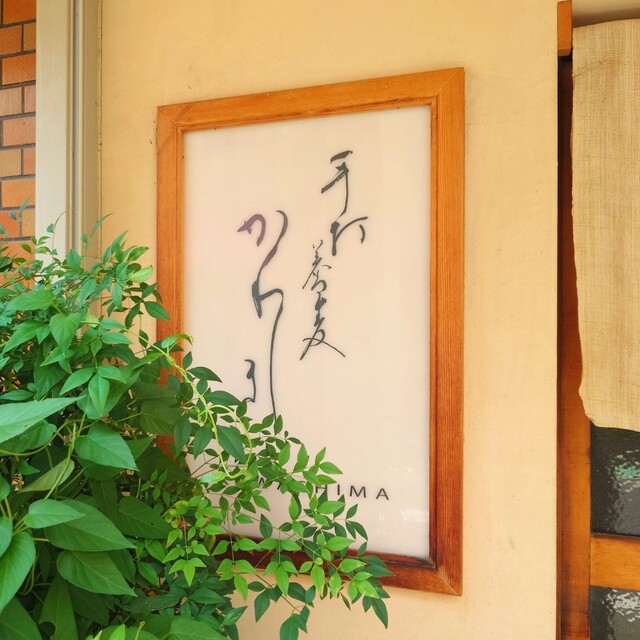 手打蕎麦
かわしま
HIMA